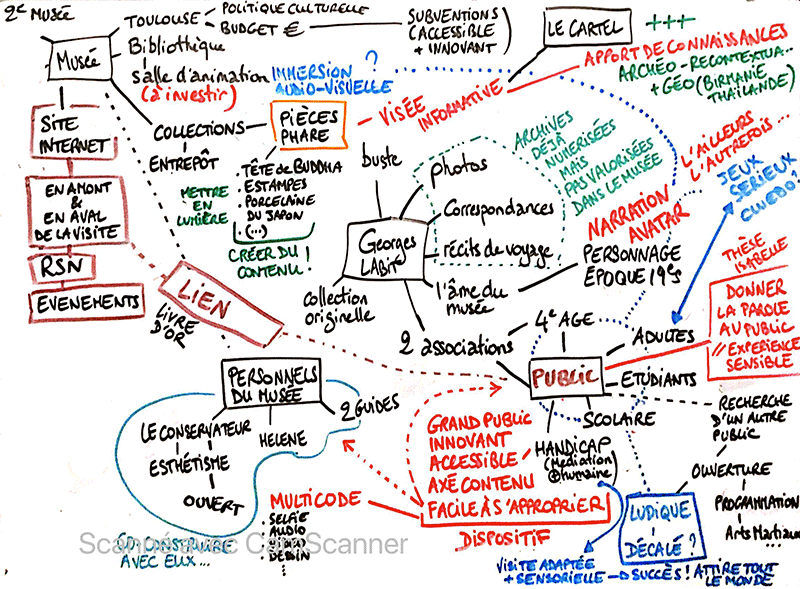 2e MUSÉE
Musée
TOULOUSE
POLITIQUE CULTURELLE
BUDGET €
SUBVENTIONS
(ACCESSIBLE
+ INNOVANT)
LE CARTEL
+++
Bibliothèque
salle d'animation
(à investir)
IMMERSION ?
AUDIO-VISUELLE
APPORT DE CONNAISSANCES
ARCHÉO-RECONTEXTUA...
+ GÉO (BIRMANIE
THAÏLANDE)
VISÉE
INFORMATIVE
COLLECTIONS
ENTREPÔT
PIÈCES
PHARE
SITE
INTERNET
EN AMONT
&
EN AVAL
DE LA VISITE
RSN
ÉVENEMENTS
METTRE
EN
LUMIÈRE
. TÊTE de BUDDHA
. ESTAMPES
. PORCELAINE
DU JAPON
. (...)
CRÉER DU
CONTENU !
buste
photos
Correspondances
récits de voyage
ARCHIVES
DÉJÀ
NUMERISÉES
MAIS
PAS VALORISÉES
DANS LE MUSÉE
Georges
LABIT
collection
originelle
l'âme du
musée
2 associations
NARRATION
AVATAR
PERSONNAGE
ÉPOQUE 19es
L'AILLEURS
L'AUTREFOIS...
JEUX
SÉRIEUX
CLUEDO?
THÈSE
ISABELLE
DONNER
LA PAROLE
AU PUBLIC
// EXPERIENCE
SENSIBLE
LIEN
LIVRE
D'OR
4e AGE
ADULTES
PUBLIC
ETUDIANTS
SCOLAIRE
HANDICAP
(Médiation
⊕ humaine)
RECHERCHE
D'UN AUTRE
PUBLIC
OUVERTURE
PROGRAMMATION
Arts Martiaux
...
PERSONNELS
DU MUSÉE
2 GUIDES
LE CONSERVATEUR
HELENE
ESTHÉTISME
OUVERT
CO-CONSTRUIRE
AVEC EUX...
GRAND PUBLIC
INNOVANT
ACCESSIBLE
AXÉ CONTENU
FACILE À S'APPROPRIER
DISPOSITIF
MULTICODE
. SELFIE
. AUDIO
. VIDEO
. DESSIN
LUDIQUE
DÉCALÉ ?
VISITE ADAPTÉE
+ SENSORIELLE → SUCCÈS ! ATTIRE TOUT
LE MONDE
Scanné avec CamScanner